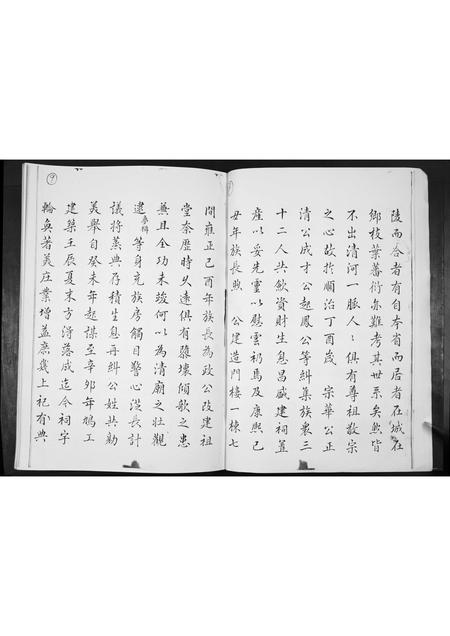 陵而合者有自本省而居者在城在
鄉枝葉蕃衍亦難考其世系矣然皆
不出清河一脈人人俱有尊祖敬宗
之心故於順治丁酉歲 宗華公正
清公成才公起鳳公等糾集族衆三
十二人共飲資財生息昌盛建祠置
產以妥先靈以慰雲礽焉及康熙己
丑年族長煦 公建造門樓一棟七
間雍正己酉年族長為政公改建祖
堂奈歷時久遠俱有隳壞傾欹之患
兼且全功未竣何以為清廟之壯觀
逮 參輯 等身充族房觸目警心浼長計
議將蒸典存積生息再糾公姓共勷
美舉自癸未年起謀至辛卯年鳩工
建築壬辰夏末方得落成迄今祠宇
輪奐著美庄業增益庶幾上祀有典
9